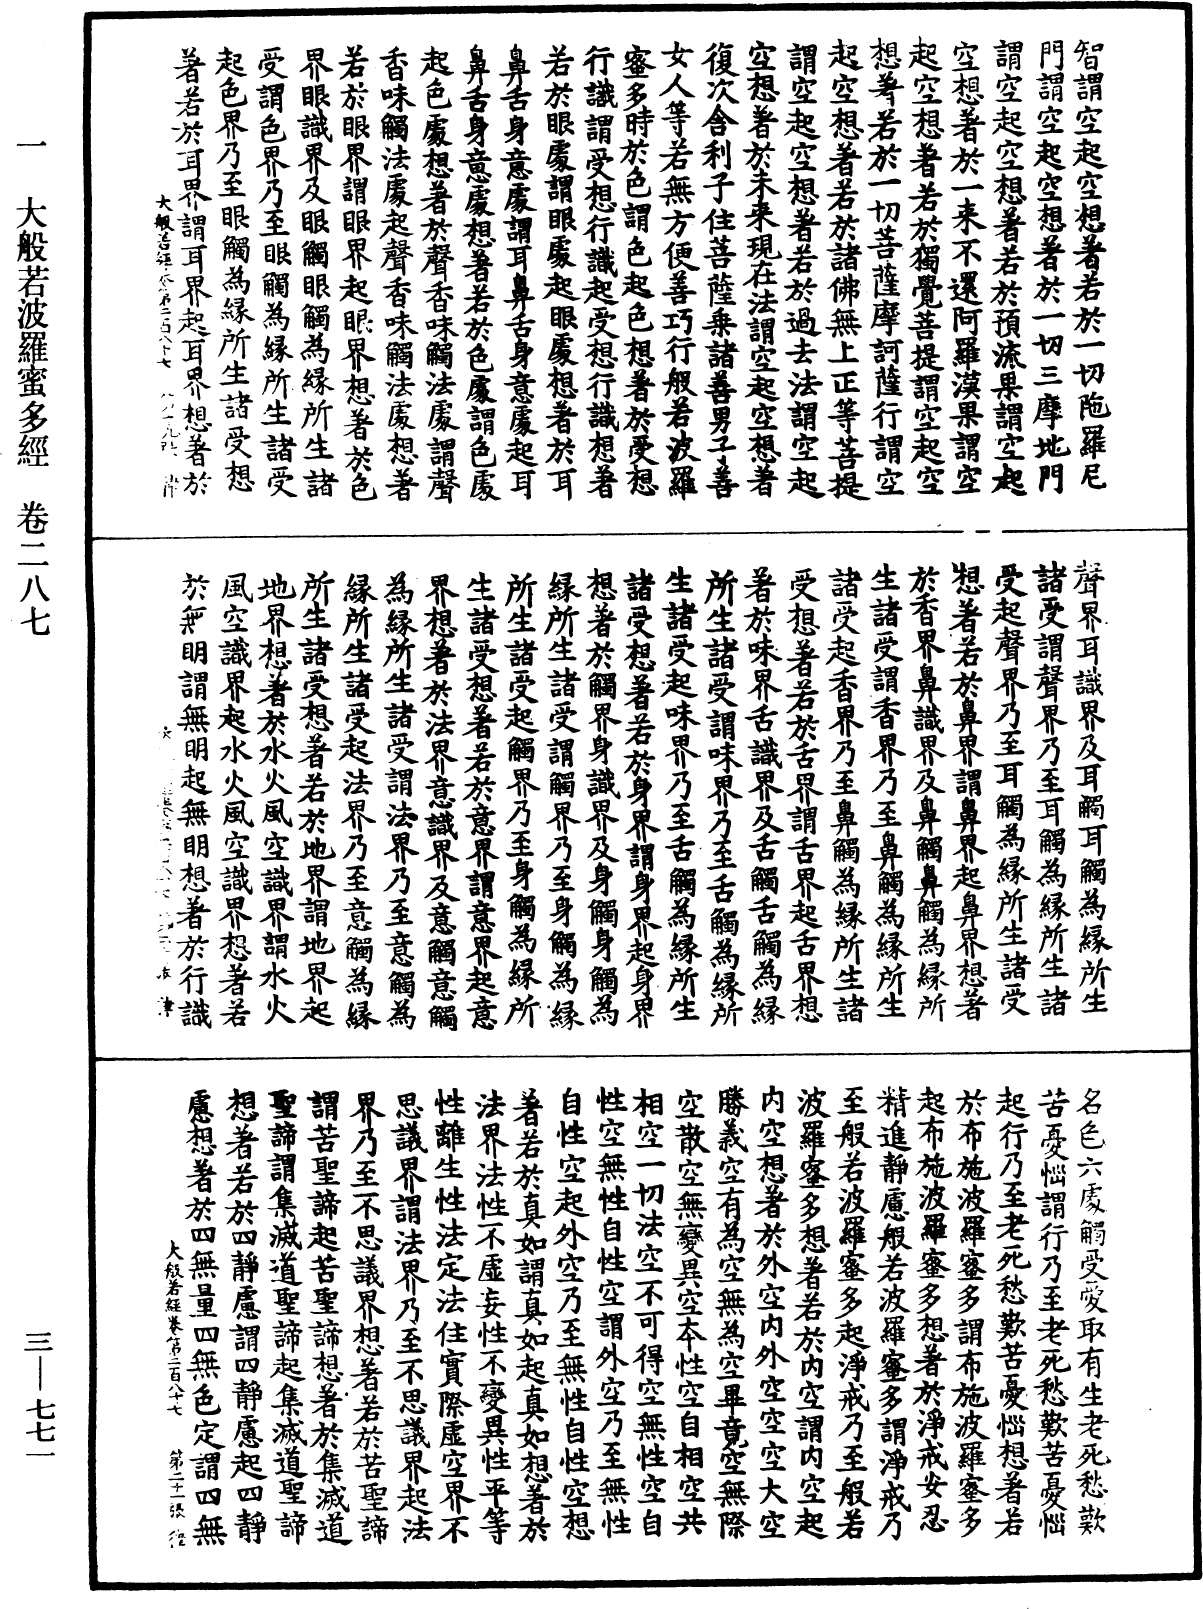 一 大般若波羅蜜多經 卷二八七
三—七七一
智謂空起空想著若於一切陁羅尼
門謂空起空想著於一切三摩地門
謂空起空想著若於預流果謂空起
空想著於一来不還阿羅漢果謂空
起空想著若於獨覺菩提謂空起空
想著若於一切菩薩摩訶薩行謂空
起空想著若於諸佛無上正等菩提
謂空起空想著若於過去法謂空起
空想著於未来現在法謂空起空想著
復次舍利子住菩薩乗諸善男子善
女人等若無方便善巧行般若波羅
蜜多時於色謂色起色想著於受想
行識謂受想行識起受想行識想著
若於眼處謂眼處起眼處想著於耳
鼻舌身意處謂耳鼻舌身意處起耳
鼻舌身意處想著若於色處謂色處
起色處想著於聲香味觸法處謂聲
香味觸法處起聲香味觸法處想著
若於眼界謂眼界起眼界想著於色
界眼識界及眼觸眼觸為緣所生諸
受謂色界乃至眼觸為緣所生諸受
起色界乃至眼觸為緣所生諸受想
著若於耳界謂耳界起耳界想著於
大般若經卷第二百八十七
聲界耳識界及耳觸耳觸為緣所生
諸受謂聲界乃至耳觸為緣所生諸
受起聲界乃至耳觸為緣所生諸受
想著若於鼻界謂鼻界起鼻界想著
於香界鼻識界及鼻觸鼻觸為緣所
生諸受謂香界乃至鼻觸為緣所生
諸受起香界乃至鼻觸為緣所生諸
受想著若於舌界謂舌界起舌界想
著於味界舌識界及舌觸舌觸為緣
所生諸受謂味界乃至舌觸為緣所
生諸受起味界乃至舌觸為緣所生
諸受想著若於身界謂身界起身界
想著於觸界身識界及身觸身觸為
緣所生諸受謂觸界乃至身觸為緣
所生諸受起觸界乃至身觸為緣所
生諸受想著若於意界謂意界起意
界想著於法界意識界及意觸意觸
為緣所生諸受謂法界乃至意觸為
緣所生諸受起法界乃至意觸為緣
所生諸受想著若於地界謂地界起
地界想著於水火風空識界謂水火
風空識界起水火風空識界想著若
於無明謂無明起無明想著於行識
名色六處觸受愛取有生老死愁歎
苦憂惱謂行乃至老死愁歎苦憂惱
起行乃至老死愁歎苦憂惱想著若
於布施波羅蜜多謂布施波羅蜜多
起布施波羅蜜多想著於淨戒安忍
精進靜慮般若波羅蜜多謂淨戒乃
至般若波羅蜜多起淨戒乃至般若
波羅蜜多想著若於内空謂内空起
内空想著於外空内外空空空大空
勝義空有為空無為空畢竟空無際
空散空無變異空本性空自相空共
相空一切法空不可得空無性空自
性空無性自性空謂外空乃至無性
自性空起外空乃至無性自性空想
著若於真如謂真如起真如想著於
法界法性不虛妄性不變異性平等
性離生性法定法住實際虛空界不
思議界謂法界乃至不思議界起法
界乃至不思議界想著若於苦聖諦
謂苦聖諦起苦聖諦想著於集滅道
聖諦謂集滅道聖諦起集滅道聖諦
想著若於四靜慮謂四靜慮起四靜
慮想著於四無量四無色定謂四無
大般若經卷第二百八十七 第二十一張